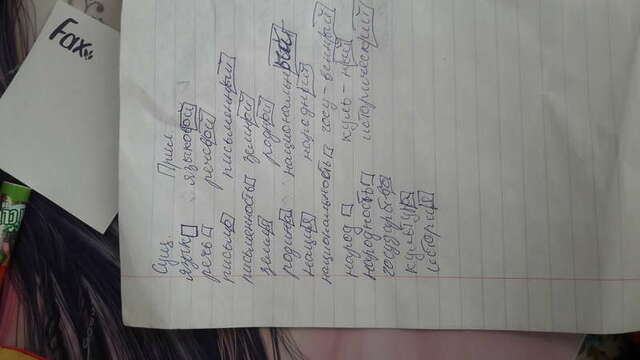 Fax
Сущ. Прил.
язык языковой
речь речевой
письмо письменный
письменность земной
земля родной
родина национальный
нация народный
национальность госу-венный
народ куль-ный
народность исторический
государство
культура
история